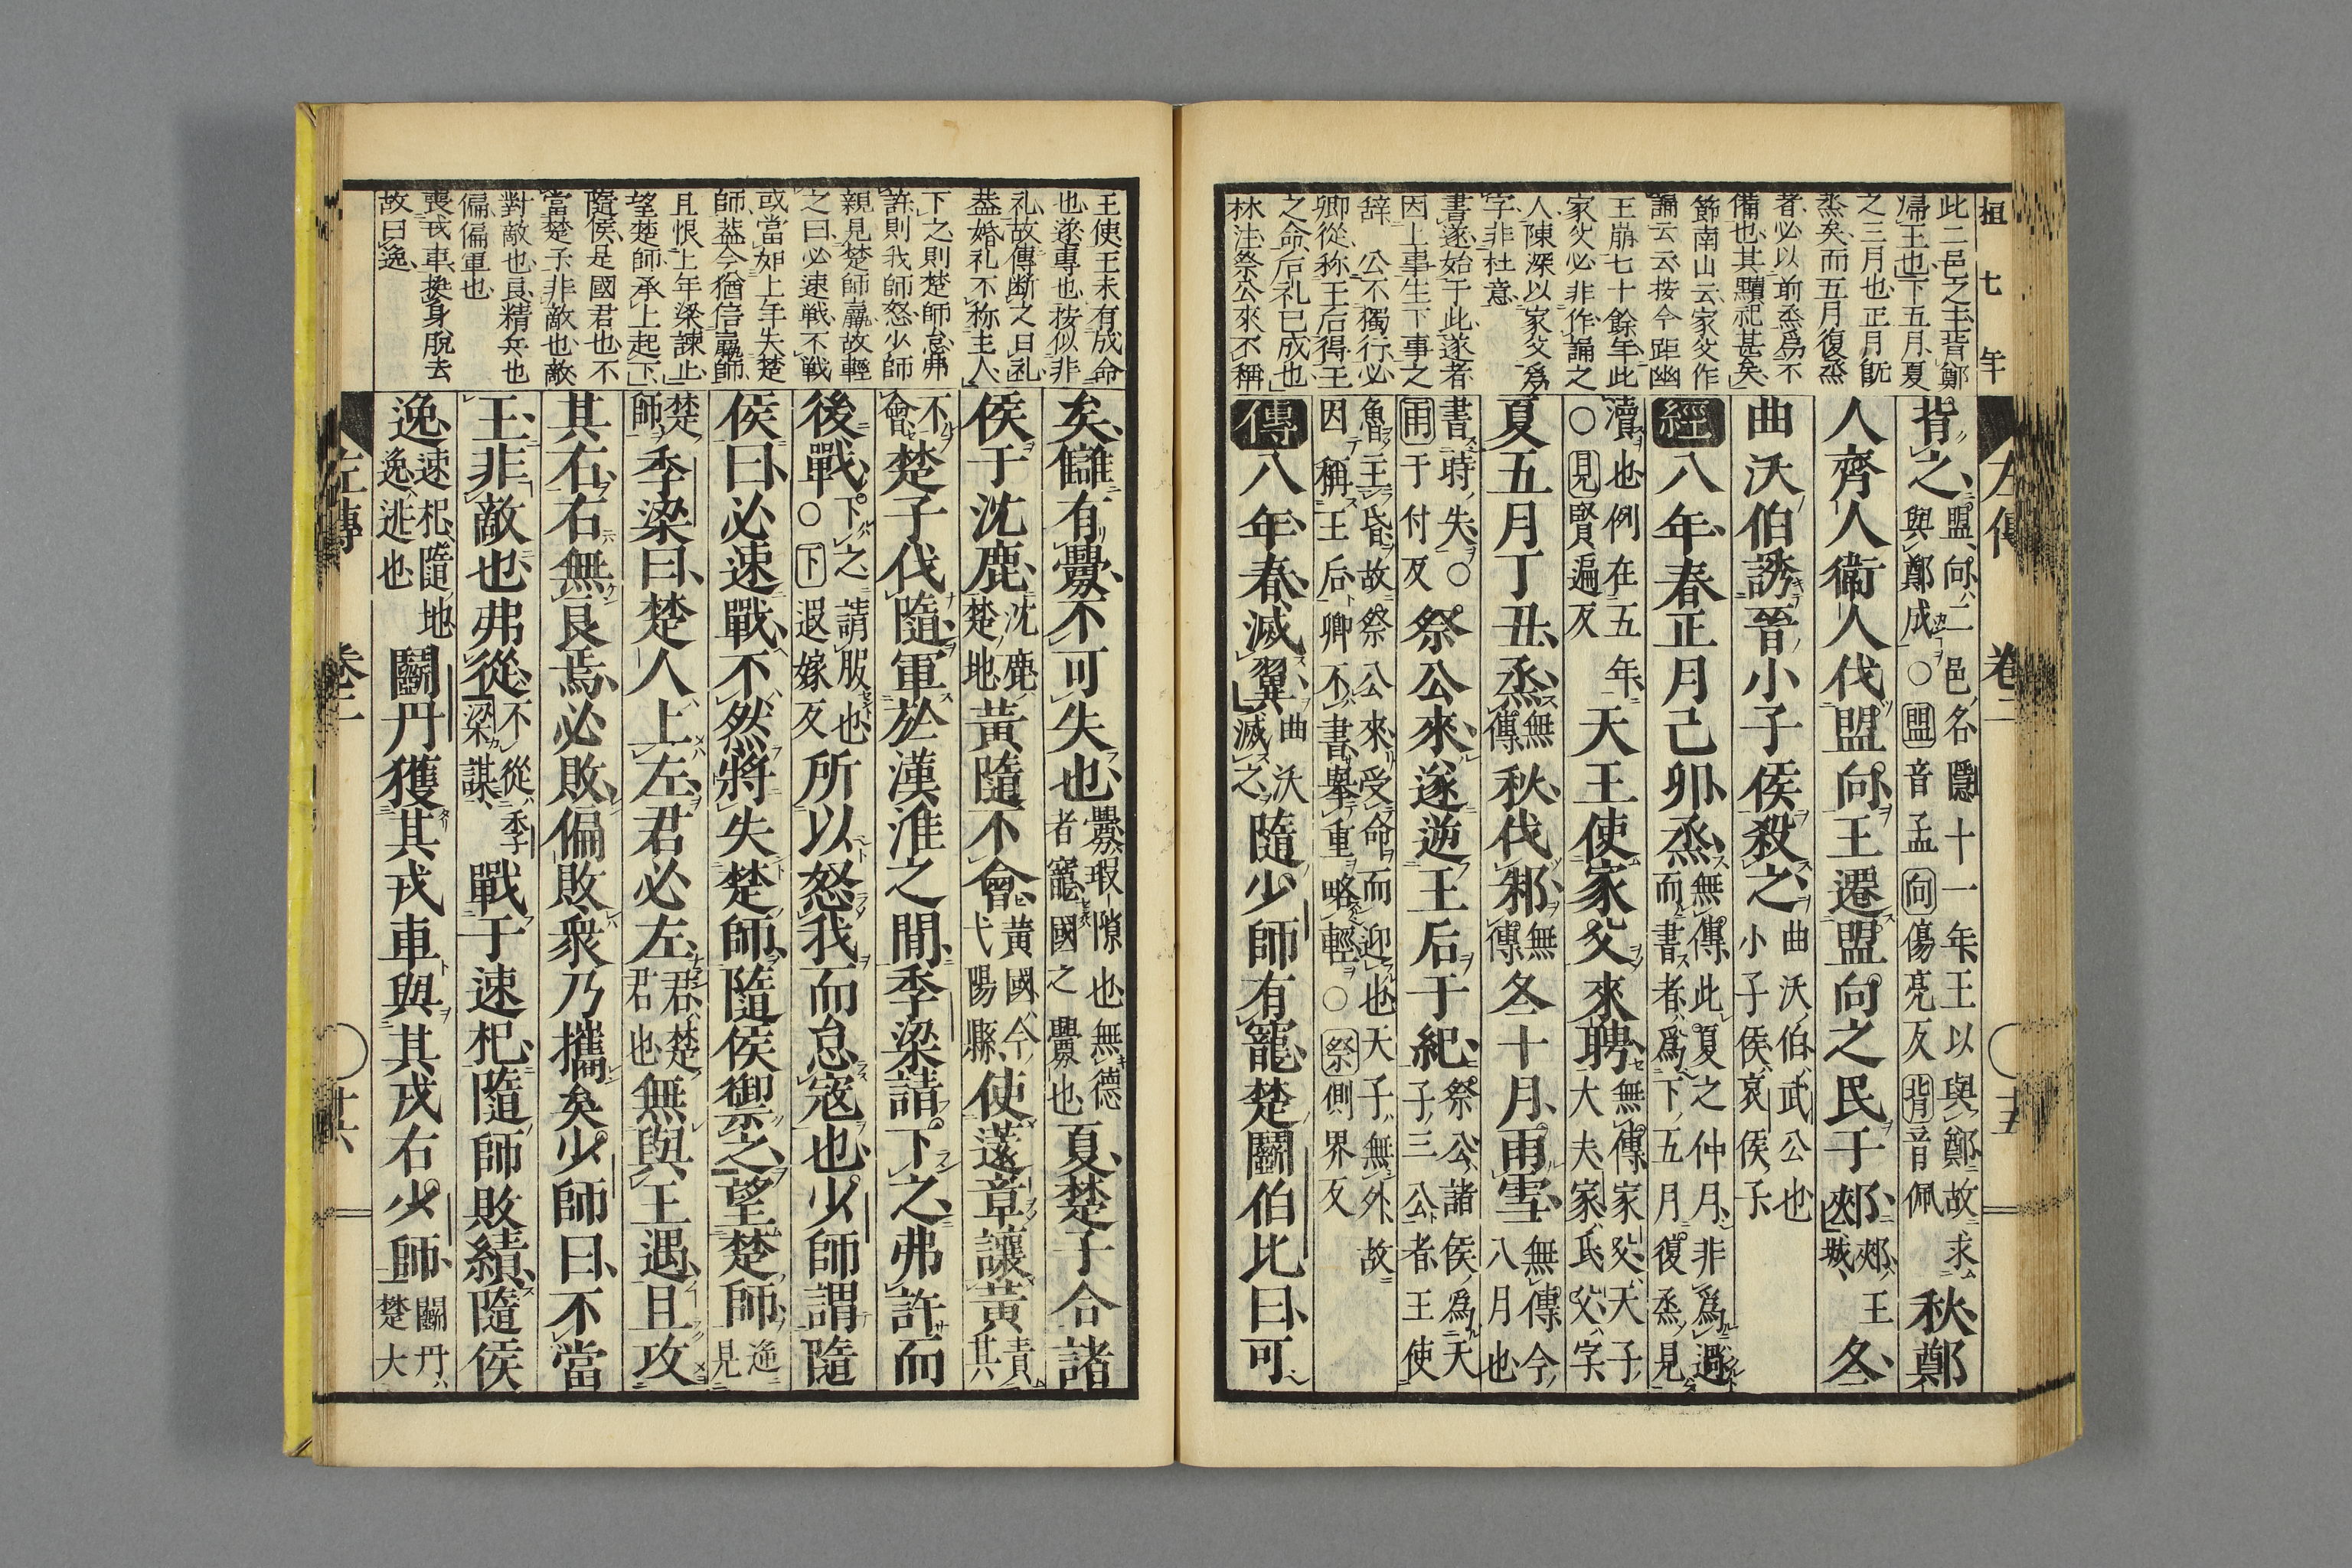 桓 七 年
此二邑之主背鄭
歸王也下五月夏
之三月也正月既
烝矣而五月復烝
者必以前烝爲不
備也其黷祀甚矣
節南山云家父作
誦云云按今距幽
王崩七十餘年此
家父必非作誦之
人陳深以家父爲
字非杜意
書遂始于此遂者
因上事生下事之
辞 公不獨行必
卿從称王后得王
之命后礼已成也
林注祭公來不稱
左傳 卷二 十五
背之盟向二邑名隱十一年王以與鄭故求
與鄭成○盟音孟向傷亮反背音佩秋鄭
人齊人衛人伐盟向王遷盟向之民于郟郟王
城冬
曲沃伯誘晉小子侯殺之曲沃伯武公也
小子侯哀侯子
經八年春正月己卯烝無傳此夏之仲月非爲過
而書者爲下五月復烝見
瀆也例在五年
○見賢遍反天王使家父來聘無傳家父天子
大夫家氏父字
夏五月丁丑烝無
傳秋伐邾無
傳冬十月雨雪無傳今
八月也
書時失○
雨于付反祭公來遂逆王后于紀祭公諸侯爲天
子三公者王使
魯主昏故祭公來受命而迎也天子無外故
因稱王后卿不書舉重略輕○祭側界反
傳八年春滅翼曲沃
滅之隨少師有寵楚鬭伯比曰可
王使王未有成命
也遂専也按似非
礼故傳断之曰礼
蓋婚礼不称主人
下之則楚師怠弗
許則我師怒少師
親見楚師羸故輕
之曰必速戦不戦
或當如上年失楚
師蓋今猶信羸師
且恨上年梁諫止
望楚師承上起下
隨侯是國君也不
當楚子非敵也敵
對敵也良精兵也
偏偏軍也
喪戎車挺身脫去
故曰逸
矣讎有釁不可失也釁瑕隙也無德
者寵國之釁也夏楚子合諸
侯于沈鹿沈鹿
楚地黃隨不會黃國今
弋陽縣使薳章讓黃責
其
不
會楚子伐隨軍於漢淮之間季梁請下之弗許而
後戰下之請服也
○下遐嫁反所以怒我而怠寇也少師謂隨
侯曰必速戰不然將失楚師隨侯御之望楚師遙
見
楚
師季梁曰楚人上左君必左君楚
君也無與王遇且攻
其右右無良焉必敗偏敗衆乃攜矣少師曰不當
王非敵也弗從不從季
梁謀戰于速杞隨師敗績隨侯
逸速杞隨地
逸逃也鬭丹獲其戎車與其戎右少師鬭丹
楚大
左傳 卷二 十六